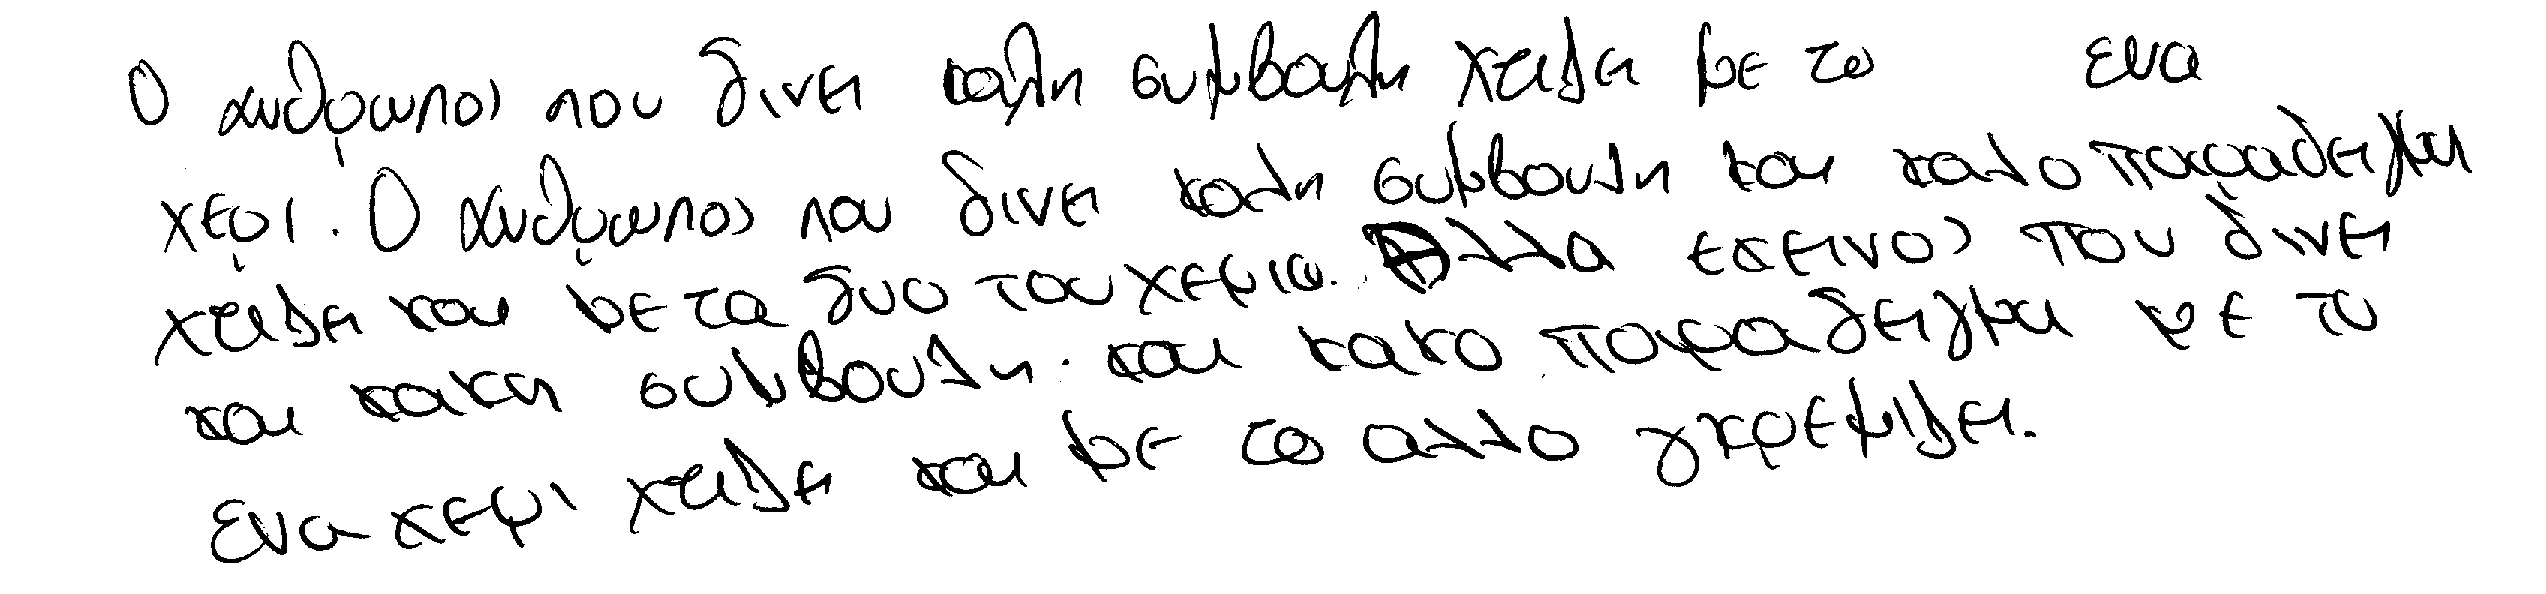 Ο ανθρωπος που δινει καλη συμβαλη χτιζει με το ενα
χερι. Ο ανθρωπος που δινει καλη συμβουλη και καλο παραδειγμα
χτιζει και με τα δυο του χερια. Αλλα εκεινος που δινει
και κακη συμβουλη. και κακο παραδειγμα με το
ενα χερι χτιζει και με το αλλο γκρεμιζει.